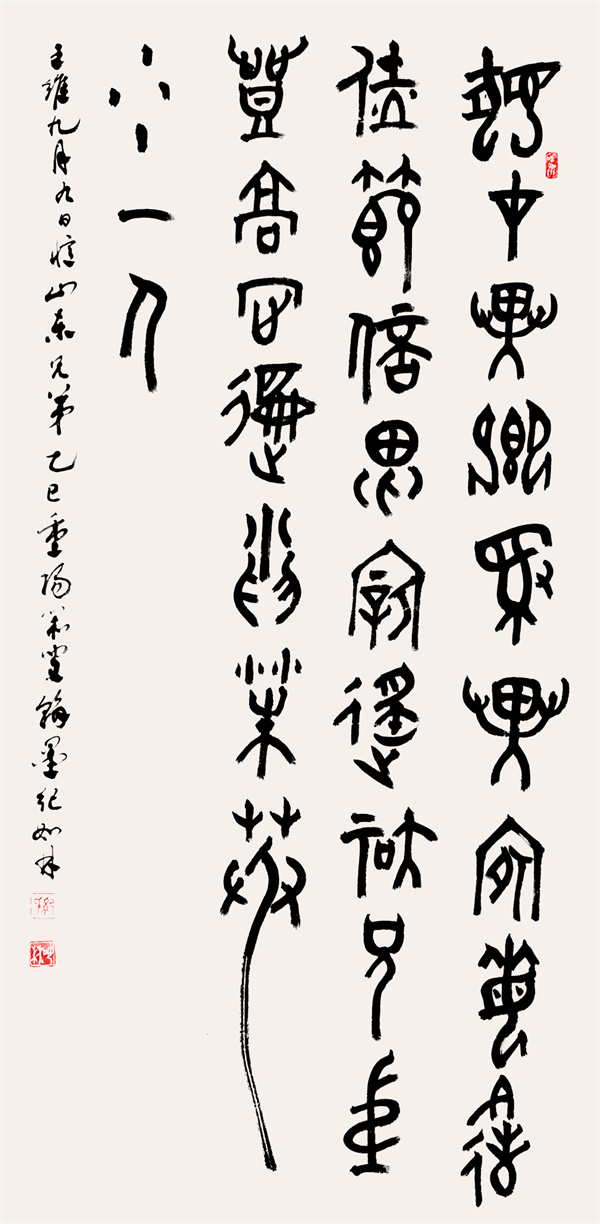 獨在異鄉為異客每逢
佳節倍思親遙知兄弟
登高處遍插茱萸
少一人
王維九月九日憶山東兄弟乙巳重陽堂翰墨紀如林